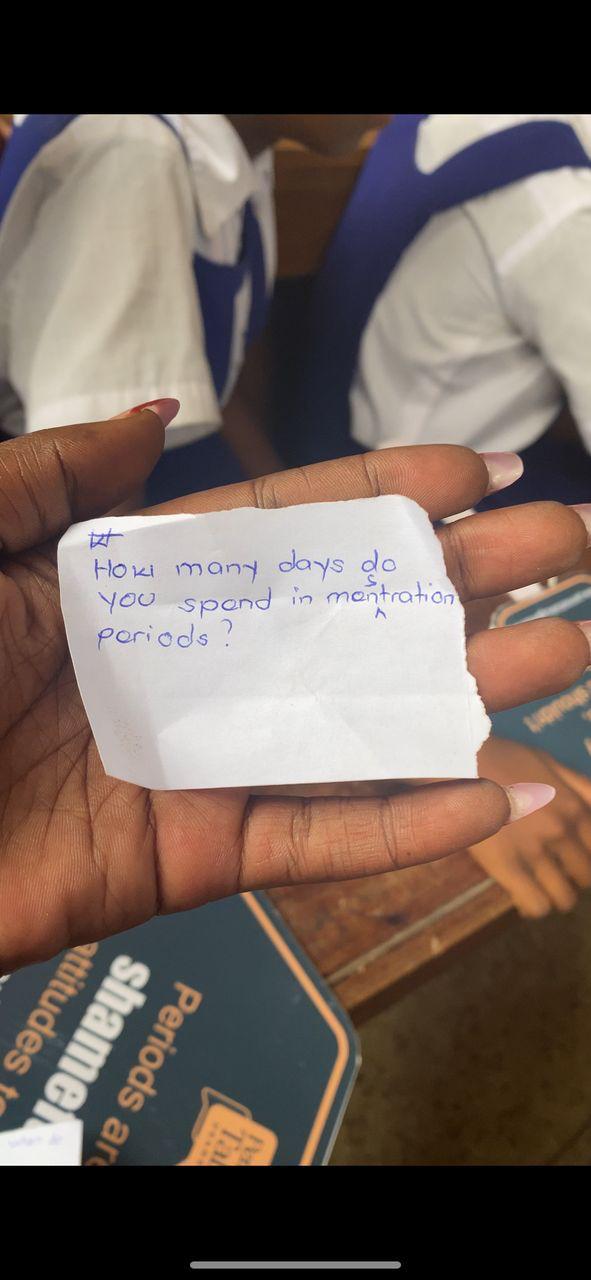 How many days do
you spend in menstration
periods?
Periods are
shame
attitudes to
shouldn't